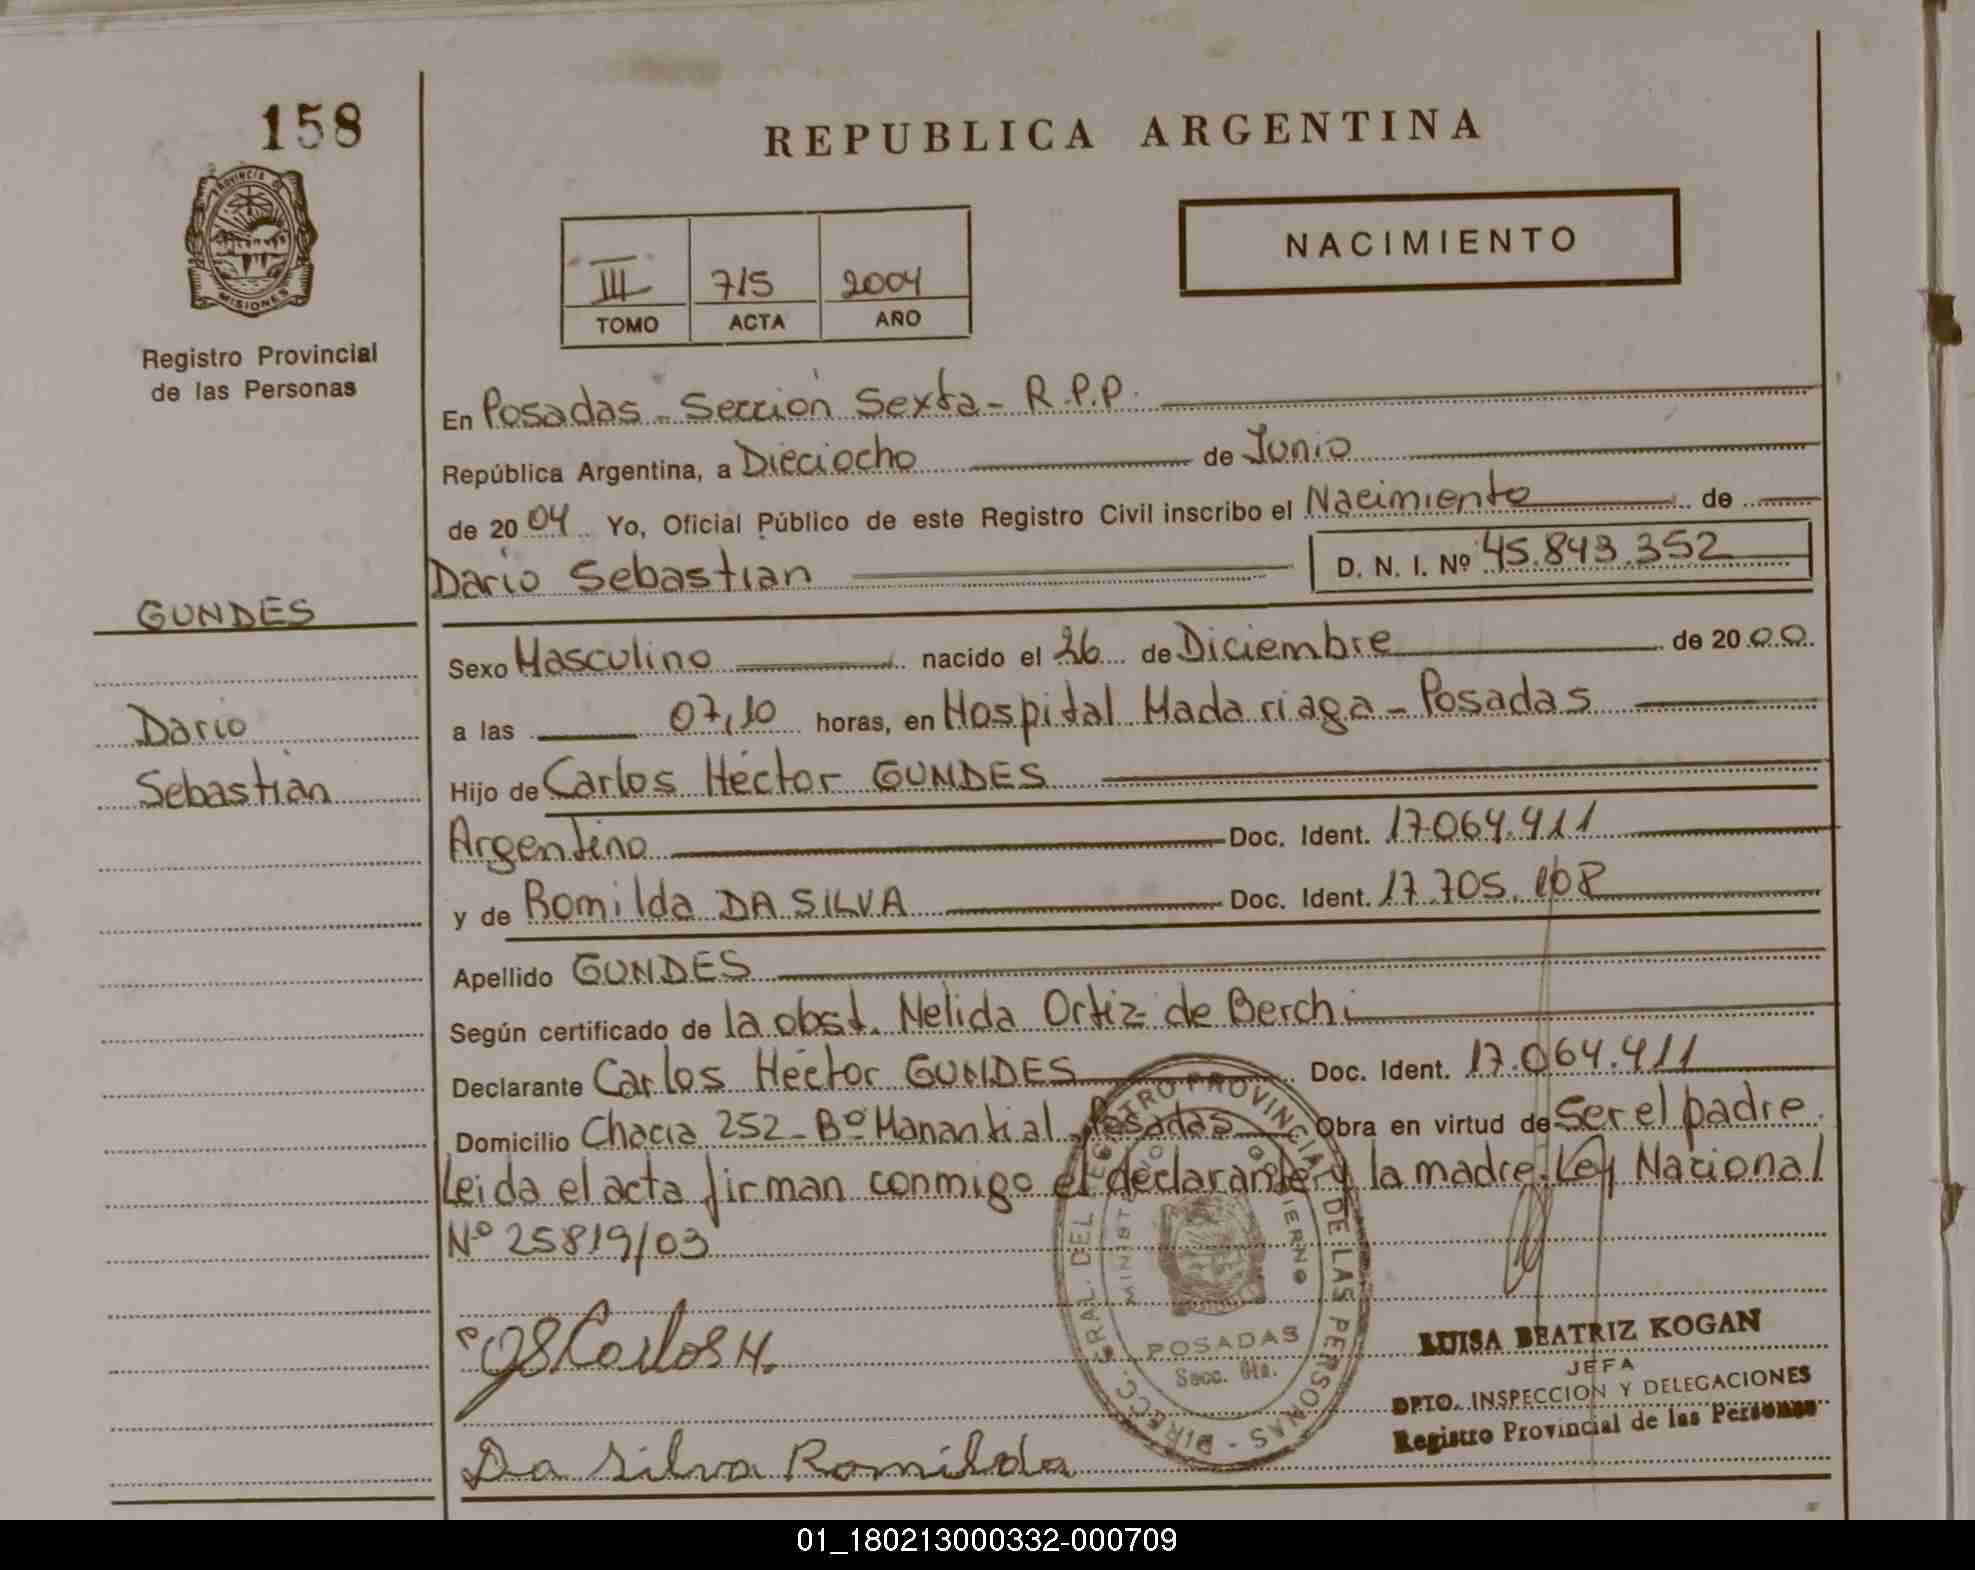 158
REPUBLICA ARGENTINA
PROVINCIA DE
MISIONES
NACIMIENTO
III 715 2004
TOMO ACTA AÑO
Registro Provincial
de las Personas
En Posadas - Sección Sexta - R.P.P.
República Argentina, a Dieciocho de Junio
de 2004 Yo, Oficial Público de este Registro Civil inscribo el Nacimiento de
Dario Sebastian D. N. I. Nº 45.843.352
GUNDES
Sexo Masculino nacido el 26 de Diciembre de 2000
Dario
a las 07,10 horas, en Hospital Madariaga - Posadas
Sebastian
Hijo de Carlos Héctor GUNDES
Argentino Doc. Ident. 17.064.411
y de Romilda DA SILVA Doc. Ident. 17.705.108
Apellido GUNDES
Según certificado de la obst. Nelida Ortiz de Berchi
Declarante Carlos Héctor GUNDES Doc. Ident. 17.064.411
Domicilio Chacra 252 - Bº Manantial, Posadas Obra en virtud de Ser el padre.
Leida el acta firman conmigo el declarante y la madre. Ley Nacional
Nº 25819/03
DIRECC. GRAL. DEL REGISTRO PROVINCIAL DE LAS PERSONAS -
MINISTERIO GOBIERNO
POSADAS
Secc. 6ta.
Carlos H.
Da Silva Romilda
LUISA BEATRIZ KOGAN
JEFA
DPTO. INSPECCION Y DELEGACIONES
Registro Provincial de las Personas
01_180213000332-000709